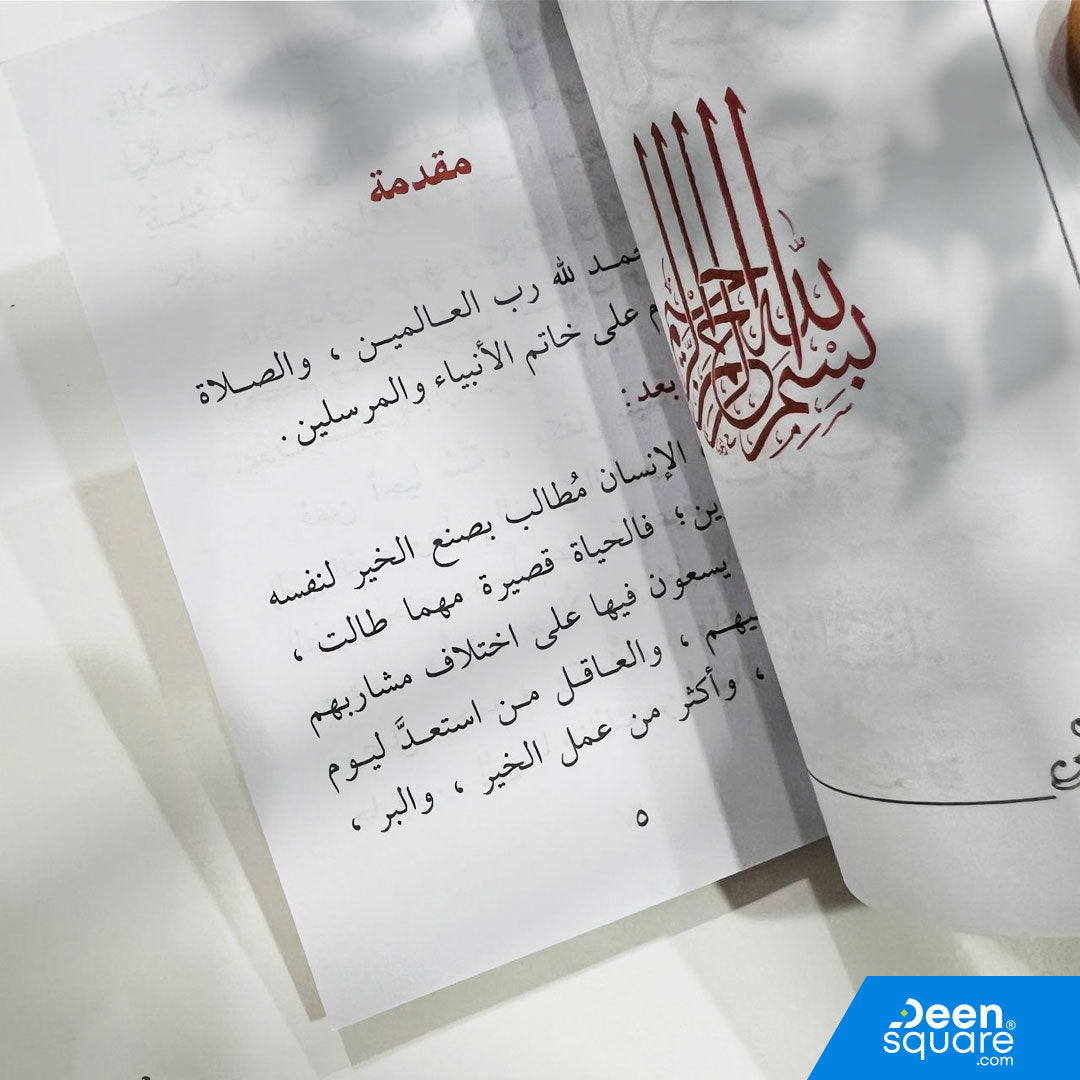 بسم الله الرحمن الرحيم
مقدمة
حمد لله رب العالمين ، والصلاة
م على خاتم الأنبياء والمرسلين .
بعد :
الإنسان مُطالب بصنع الخير لنفسه
ين ؛ فالحياة قصيرة مهما طالت ،
يسعون فيها على اختلاف مشاربهم
يهم ، والعاقل من استعدَّ ليوم
، وأكثر من عمل الخير ، والبر ،
٥
Deen
square®
.com